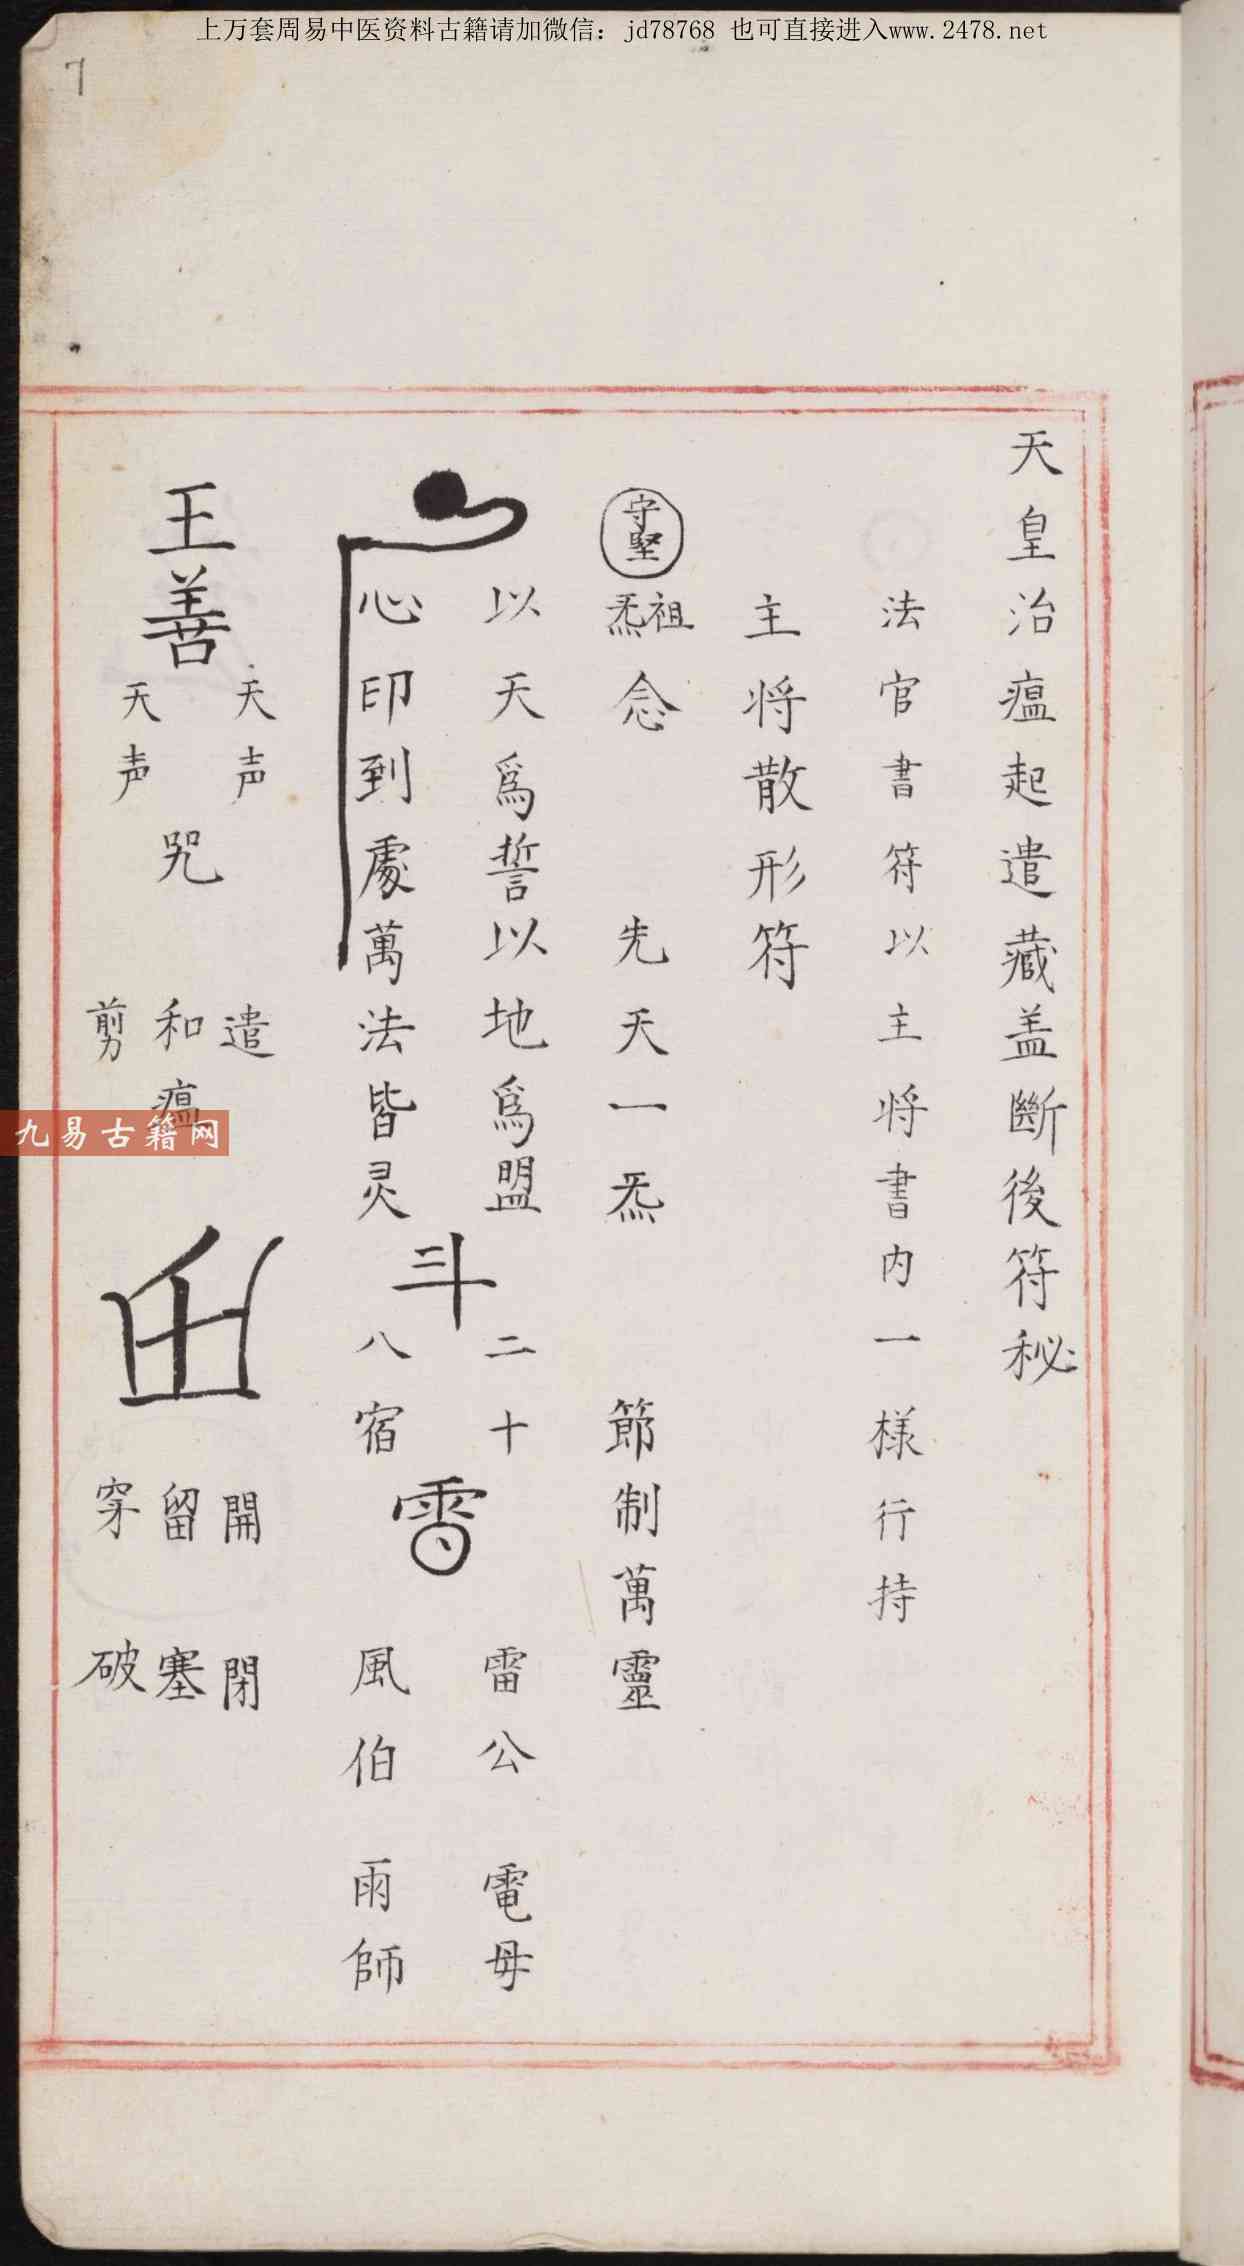 上万套周易中医资料古籍请加微信：jd78768 也可直接进入www.2478.net
7
天皇治瘟起遣藏盖斷後符秘
法官書符以主将書内一様行持
主将散形符
守堅
祖炁
念 先天一炁 節制萬靈
以天爲誓以地爲盟
心印到處萬法皆灵
斗
二十
八宿
雷公 電母
風伯 雨師
王善
天声
天声
咒
遣
和瘟
剪
開 閉
留 塞
穿 破
九易古籍网